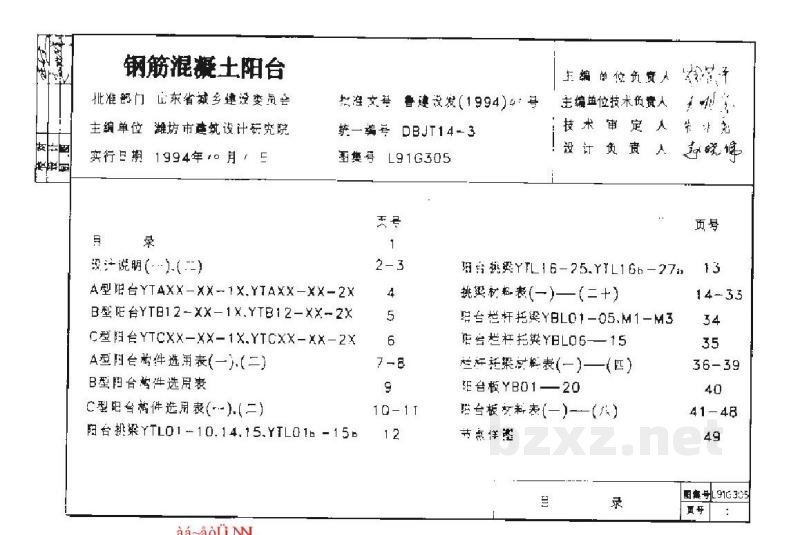 钢筋混凝土阳台
批准部门 山东省城乡建设委员会
主编单位 潍坊市建筑设计研究院
实行日期 1994年10月1日
批准文号 鲁建设发(1994) 号
统一编号 DBJT14-3
图集号 L91G305
主编单位负责人
主编单位技术负责人
技术审定人
设计负责人
页号
目 录 1
设计说明(一).(二) 2-3
A型阳台YTAXX-XX-1X.YTAXX-XX-2X 4
B型阳台YTB12-XX-1X.YTB12-XX-2X 5
C型阳台YTCXX-XX-1X.YTCXX-XX-2X 6
A型阳台构件选用表(一).(二) 7-8
B型阳台构件选用表 9
C型阳台构件选用表(一).(二) 10-11
阳台挑梁YTL01-10.14.15.YTL01b-15b 12
页号
阳台挑梁YTL16-25.YTL16b-27b 13
挑梁材料表(一)—(二十) 14-33
阳台栏杆托梁YBL01-05.M1-M3 34
阳台栏杆托梁YBL06—15 35
栏杆托梁材料表(一)—(四) 36-39
阳台板YB01—20 40
阳台板材料表(一)—(八) 41-48
节点详图 49
bzxz.net
目 录
图集号 L91G305
页号 1